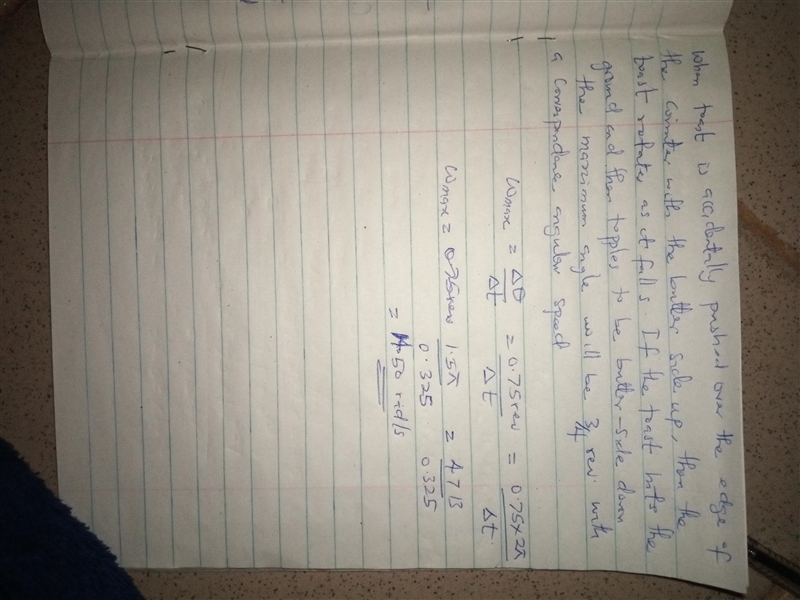 When toast is accidentally pushed over the edge of
the counter with the butter side up, then the
toast rotates as it falls. If the toast hits the
ground and then topples to be butter-side down
the maximum angle will be 3/4 rev. with
a correspondane angular speed
Wmax = Δθ/Δt = 0.75rev/Δt = 0.75×2π/Δt
Wmax = 0.75rev 1.5π/0.325 = 4713/0.325
= 14.50 rid/s